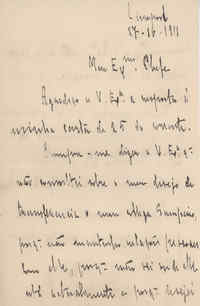 Liverpool
27-10-1911
Meu Exmo. Chefe
Agradeço a V. Exª a resposta á
minha carta de 25 do corrente.
Cumpre-me dizer a V. Exª q.
não consultei sobre o meu desejo de
transferencia o meu collega Sampaio,
porq. não mantenho relações pessoaes
com elle, porq. não sei se elle
está actualmente e porq. desejei